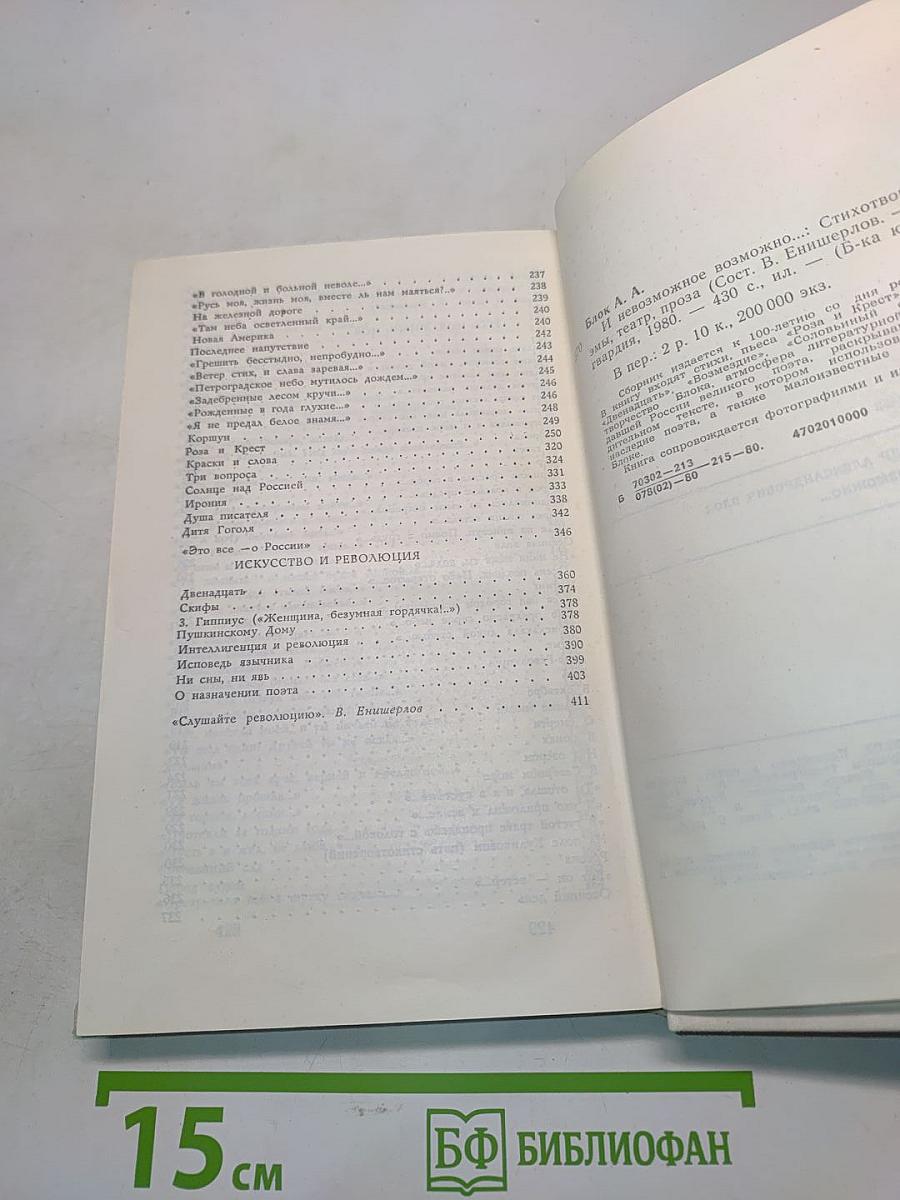 «В голодной и больной неволе...» 237
«Русь моя, жизнь моя, вместе ль нам маяться?..» 238
На железной дороге 239
«Там неба осветленный край...» 240
Новая Америка 240
Последнее напутствие 242
«Грешить бесстыдно, непробудно...» 243
«Ветер стих, и слава заревая...» 244
«Петроградское небо мутилось дождем...» 245
«Задебренные лесом кручи...» 246
«Рожденные в года глухие...» 246
«Я не предал белое знамя...» 248
Коршун 249
Роза и Крест 250
Краски и слова 320
Три вопроса 324
Солнце над Россией 331
Ирония 333
Душа писателя 338
Дитя Гоголя 342
«Это все —о России» 346
ИСКУССТВО И РЕВОЛЮЦИЯ
Двенадцать 360
Скифы 374
З. Гиппиус («Женщина, безумная гордячка!..») 378
Пушкинскому Дому 378
Интеллигенция и революция 380
Исповедь язычника 390
Ни сны, ни явь 399
О назначении поэта 403
«Слушайте революцию». В. Енишерлов 411
Блок А. А.
И невозможное возможно...: Стихотво
эмы, театр, проза (Сост. В. Енишерлов. —
гвардия, 1980. — 430 с., ил. — (Б-ка ю
В пер.: 2 р. 10 к., 200 000 экз.
Сборник издается к 100-летию со дня ро
В книгу входят стихи, пьеса «Роза и Крест»
«Двенадцать», «Возмездие», «Соловьиный
творчество Блока, атмосфера литературно
давшей России великого поэта, раскрыва
дительном тексте, в котором использов
наследие поэта, а также малоизвестные
Блоке.
Книга сопровождается фотографиями и и
Б 70302—213
078(02)—80 —215—80. 4702010000
15 см
БФ БИБЛИОФАН